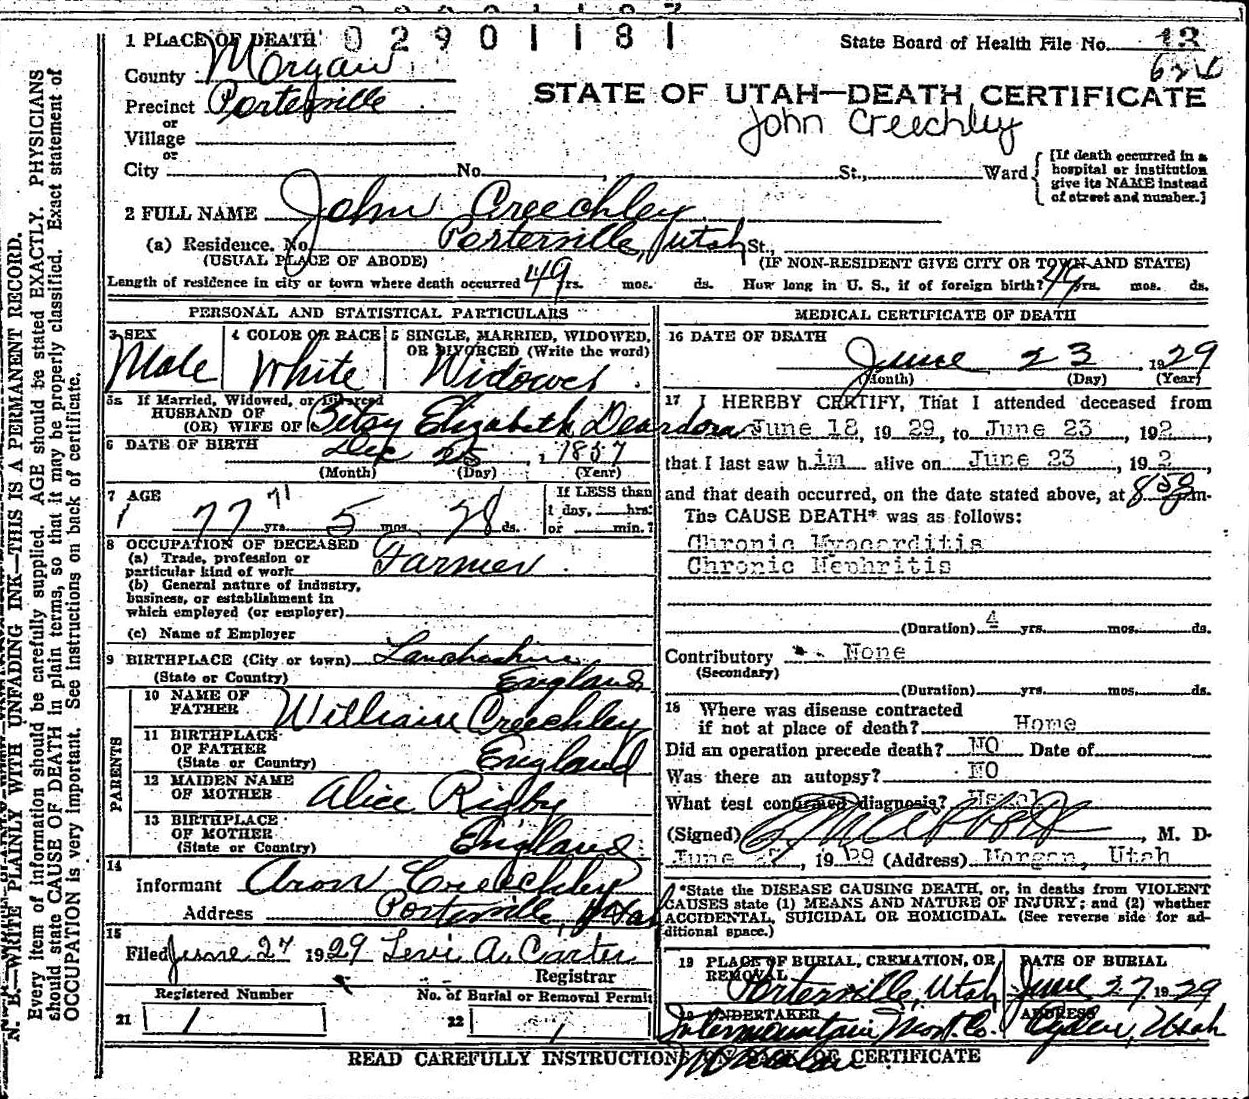 02901181
1 PLACE OF DEATH
State Board of Health File No. 13
County Morgan
Precinct Porterville
STATE OF UTAH—DEATH CERTIFICATE
or
John Creechley
Village
or
City No. St., Ward
[If death occurred in a
hospital or institution
give its NAME instead
of street and number.]
2 FULL NAME John Creechley
(a) Residence. No. Porterville, Utah St.,
(USUAL PLACE OF ABODE) (IF NON-RESIDENT GIVE CITY OR TOWN AND STATE)
Length of residence in city or town where death occurred 49 yrs. mos. ds. How long in U. S., if of foreign birth? 49 yrs. mos. ds.
PERSONAL AND STATISTICAL PARTICULARS
3 SEX 4 COLOR OR RACE 5 SINGLE, MARRIED, WIDOWED,
OR DIVORCED (Write the word)
Male White Widower
5a If Married, Widowed, or Divorced
HUSBAND OF
(OR) WIFE OF Betsy Elizabeth Deardon
6 DATE OF BIRTH Dec 25 1857
(Month) (Day) (Year)
7 AGE 71 If LESS than
77 yrs. 5 mos. 28 ds. 1 day, hrs.
or min.?
8 OCCUPATION OF DECEASED
(a) Trade, profession or
particular kind of work Farmer
(b) General nature of industry,
business, or establishment in
which employed (or employer)
(c) Name of Employer
9 BIRTHPLACE (City or town) Lancashire
(State or Country) England
PARENTS
10 NAME OF
FATHER William Creechley
11 BIRTHPLACE
OF FATHER
(State or Country) England
12 MAIDEN NAME
OF MOTHER Alice Rigby
13 BIRTHPLACE
OF MOTHER
(State or Country) England
14
Informant Aron Creechley
Address Porterville, Utah
15
Filed June 27 1929 Levi A. Carter
Registrar
Registered Number No. of Burial or Removal Permit
21 1 22 1
MEDICAL CERTIFICATE OF DEATH
16 DATE OF DEATH
June 23 1929
(Month) (Day) (Year)
17 I HEREBY CERTIFY, That I attended deceased from
June 18, 1929, to June 23, 192
that I last saw him alive on June 23, 192
and that death occurred, on the date stated above, at m.
The CAUSE DEATH* was as follows:
Chronic Myocarditis
Chronic Nephritis
(Duration) 4 yrs. mos. ds.
Contributory None
(Secondary)
(Duration) yrs. mos. ds.
18 Where was disease contracted
if not at place of death? Home
Did an operation precede death? NO Date of
Was there an autopsy? NO
What test confirmed diagnosis? Usual
(Signed) , M. D.
June 27, 1929 (Address) Morgan, Utah
*State the DISEASE CAUSING DEATH, or, in deaths from VIOLENT
CAUSES state (1) MEANS AND NATURE OF INJURY; and (2) whether
ACCIDENTAL, SUICIDAL OR HOMICIDAL. (See reverse side for ad-
ditional space.)
19 PLACE OF BURIAL, CREMATION, OR DATE OF BURIAL
REMOVAL
Porterville, Utah June 27 1929
UNDERTAKER ADDRESS
Intermountain Mort. Co. Ogden, Utah
READ CAREFULLY INSTRUCTIONS ON BACK OF CERTIFICATE
N. B.—WRITE PLAINLY WITH UNFADING INK—THIS IS A PERMANENT RECORD.
Every item of information should be carefully supplied. AGE should be stated EXACTLY. PHYSICIANS
should state CAUSE OF DEATH in plain terms, so that it may be properly classified. Exact statement of
OCCUPATION is very important. See instructions on back of certificate.